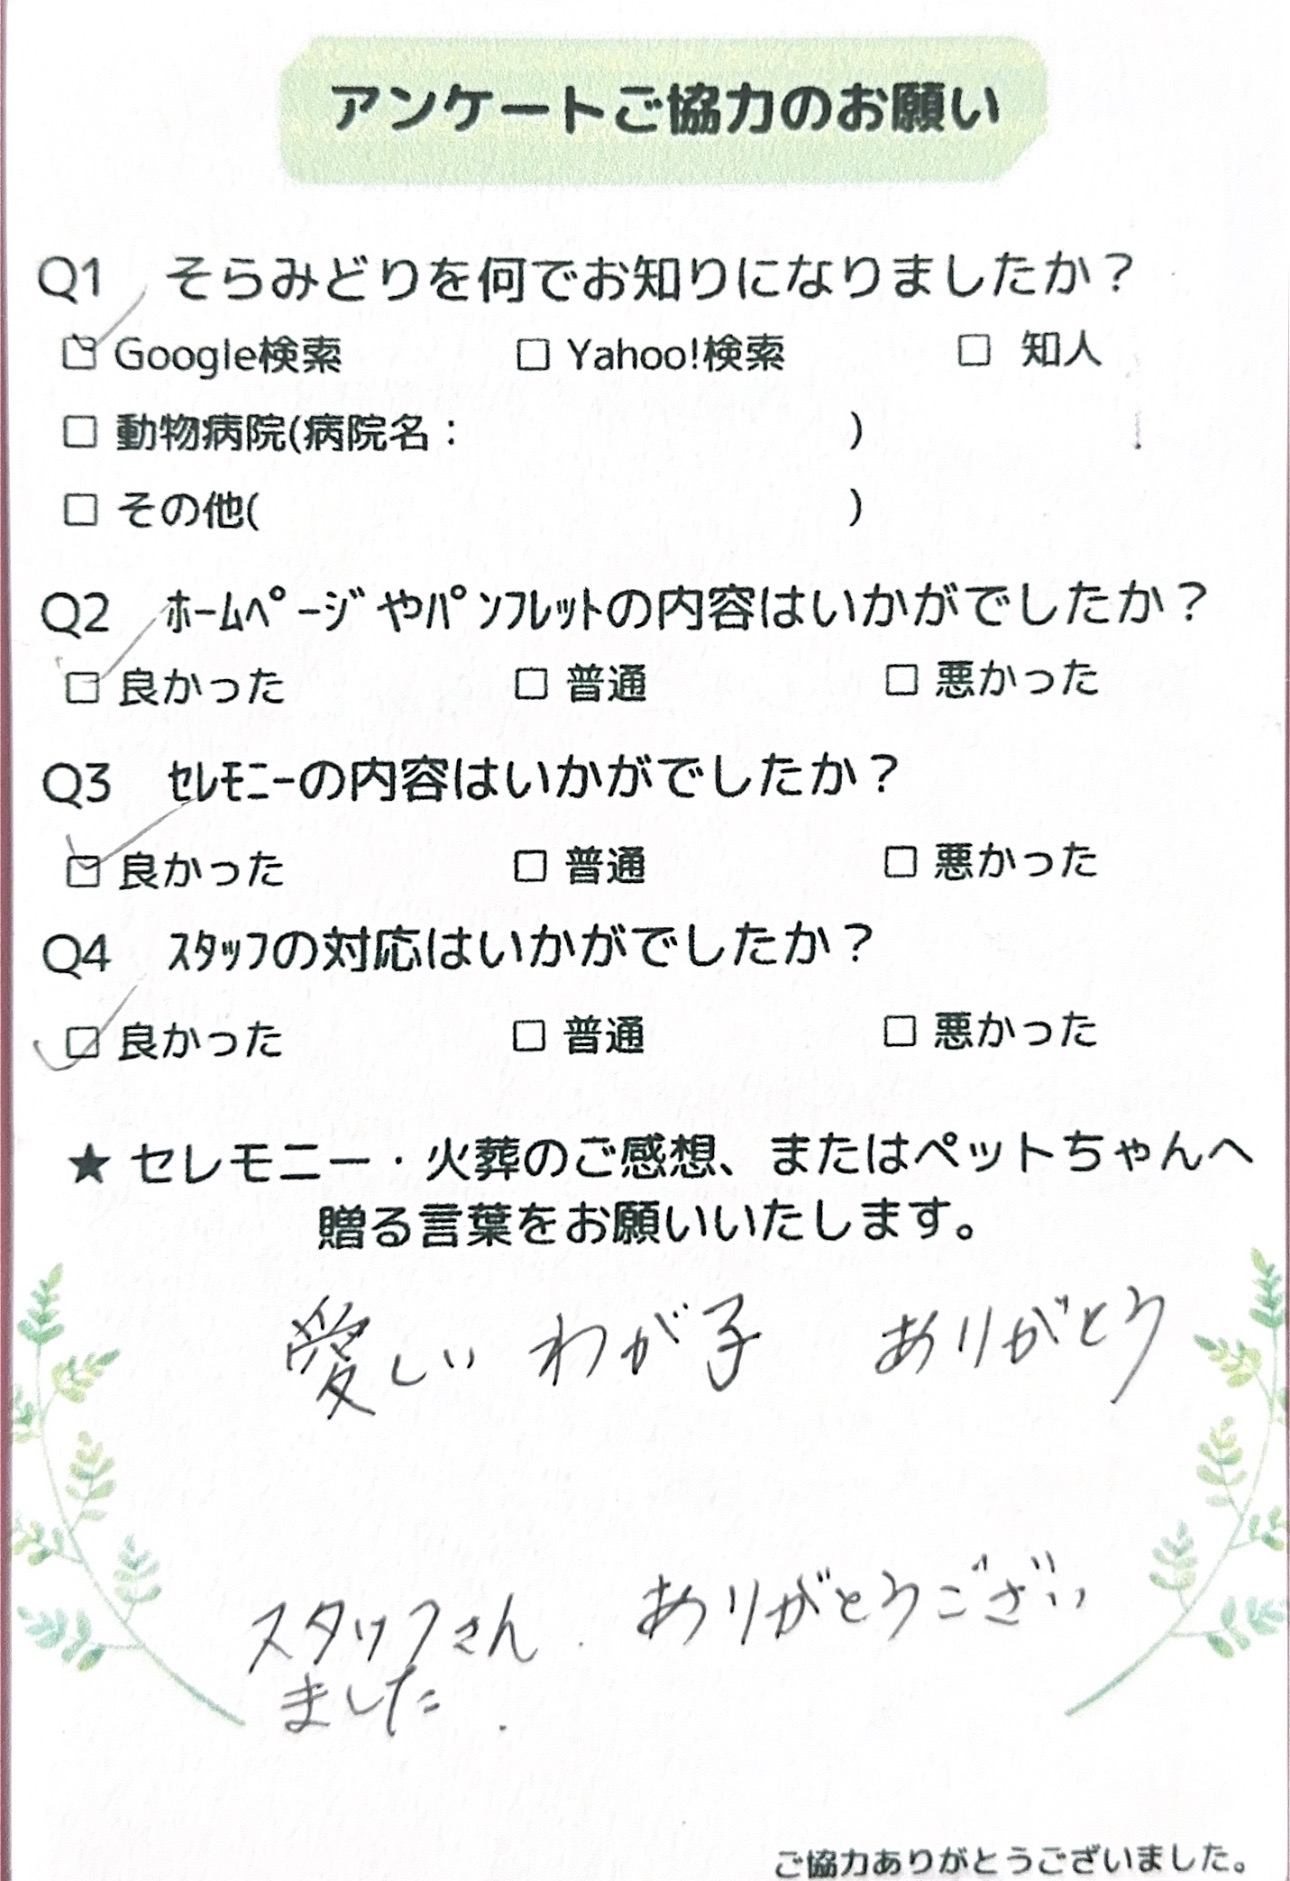 アンケートご協力のお願い
Q1 そらみどりを何でお知りになりましたか？
☑ Google検索 □ Yahoo!検索 □ 知人
□ 動物病院(病院名： )
□ その他( )
Q2 ﾎｰﾑﾍﾟｰｼﾞやﾊﾟﾝﾌﾚｯﾄの内容はいかがでしたか？
☑ 良かった □ 普通 □ 悪かった
Q3 ｾﾚﾓﾆｰの内容はいかがでしたか？
☑ 良かった □ 普通 □ 悪かった
Q4 ｽﾀｯﾌの対応はいかがでしたか？
☑ 良かった □ 普通 □ 悪かった
★ セレモニー・火葬のご感想、またはペットちゃんへ
贈る言葉をお願いいたします。
愛しい わが子 ありがとう
スタッフさん. ありがとうござい
ました.
ご協力ありがとうございました。